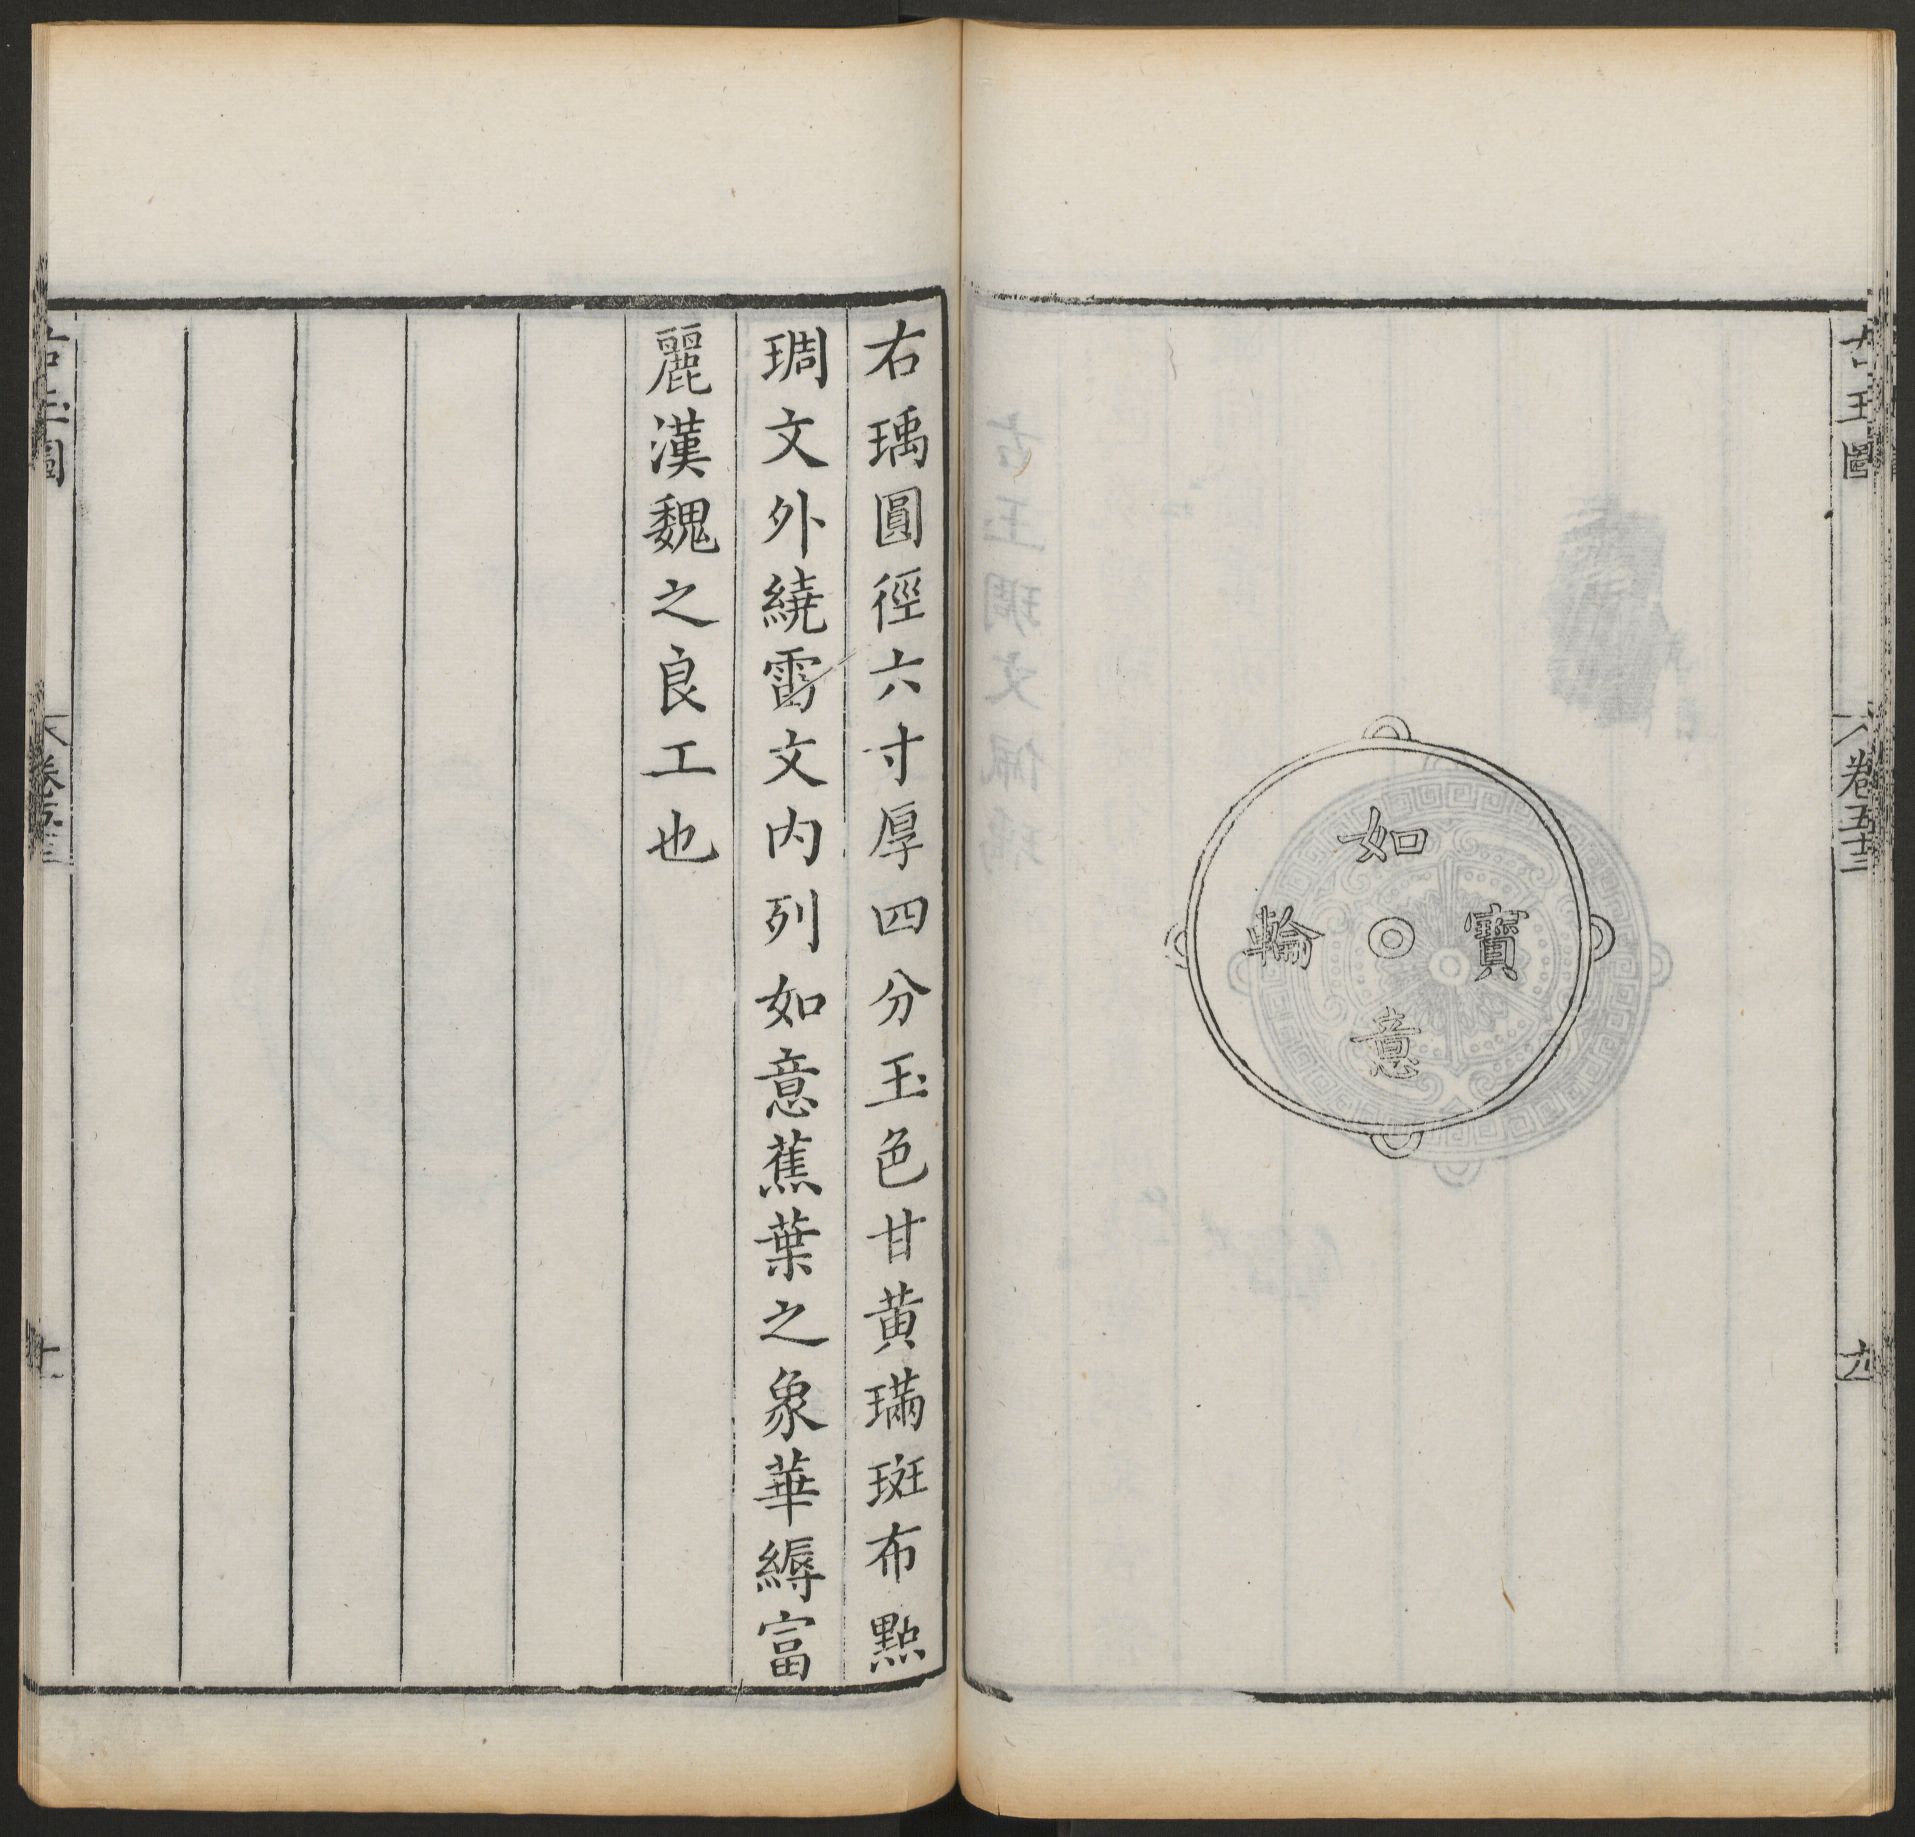 古玉圖
卷五十三
九
如
寶
意
輪
右瑀圓徑六寸厚四分玉色甘黃璊斑布點
琱文外繞雷文內列如意蕉葉之象華縟富
麗漢魏之良工也
古玉圖
十